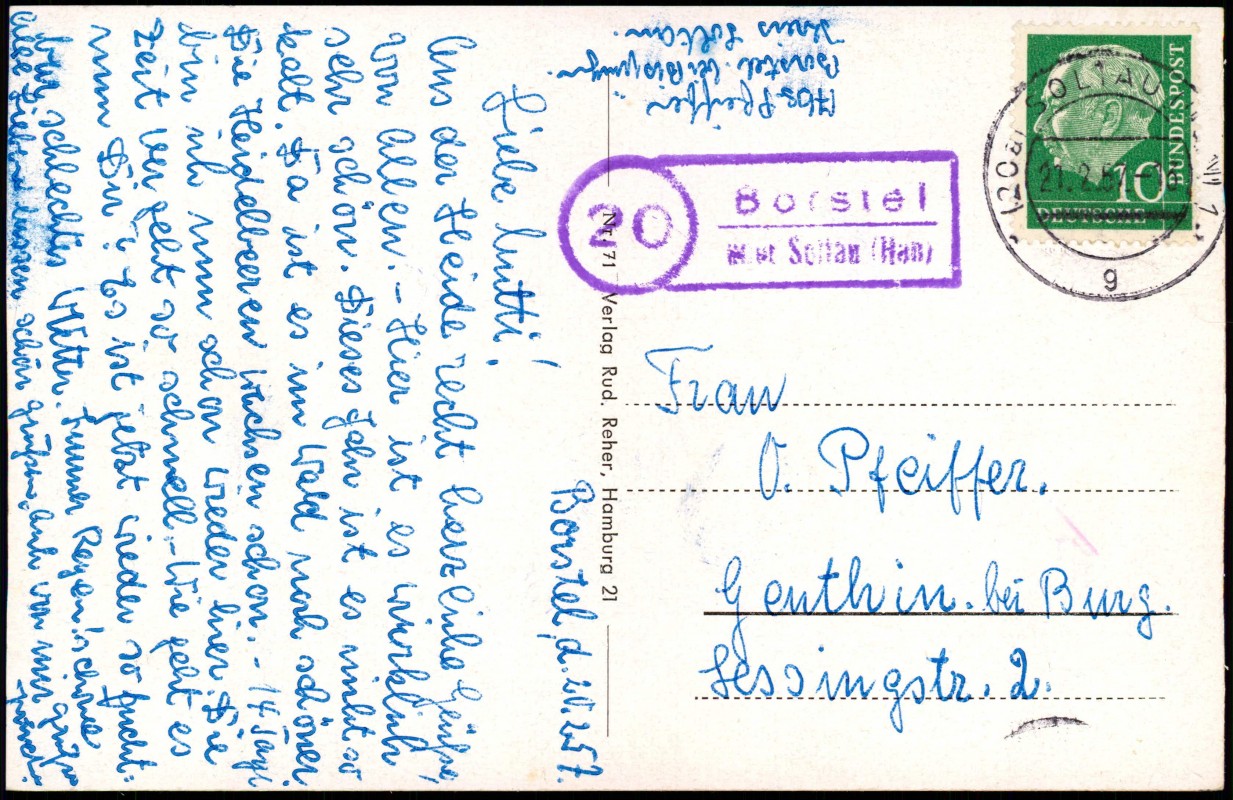 Borstel, d. 20.2.57.
Liebe Mutti!
Aus der Heide recht herzliche Grüße,
von Allen. - Hier ist es wirklich
sehr schön. Dieses Jahr ist es nicht so
kalt. Da ist es im Wald noch schöner.
Die Heidelbeeren wachsen schon. - 14 Tage
bin ich nun schon wieder hier. Die
Zeit vergeht so schnell. - Wie geht es
nun Dir? Es ist jetzt wieder so furcht-
bar schlechtes Wetter. Immer Regen!
Alle lassen schön grüßen, auch von mir
Abs. Pfeiffer
Borstel bei Bispingen
Kreis Soltau.
20
Borstel
über Soltau (Han)
(20a) SOLTAU
21.2.57
g
10
DEUTSCHE
BUNDESPOST
Nr. 71 Verlag Rud. Reher, Hamburg 21
Frau
O. Pfeiffer.
Genthin. bei Burg.
Lessingstr. 2.